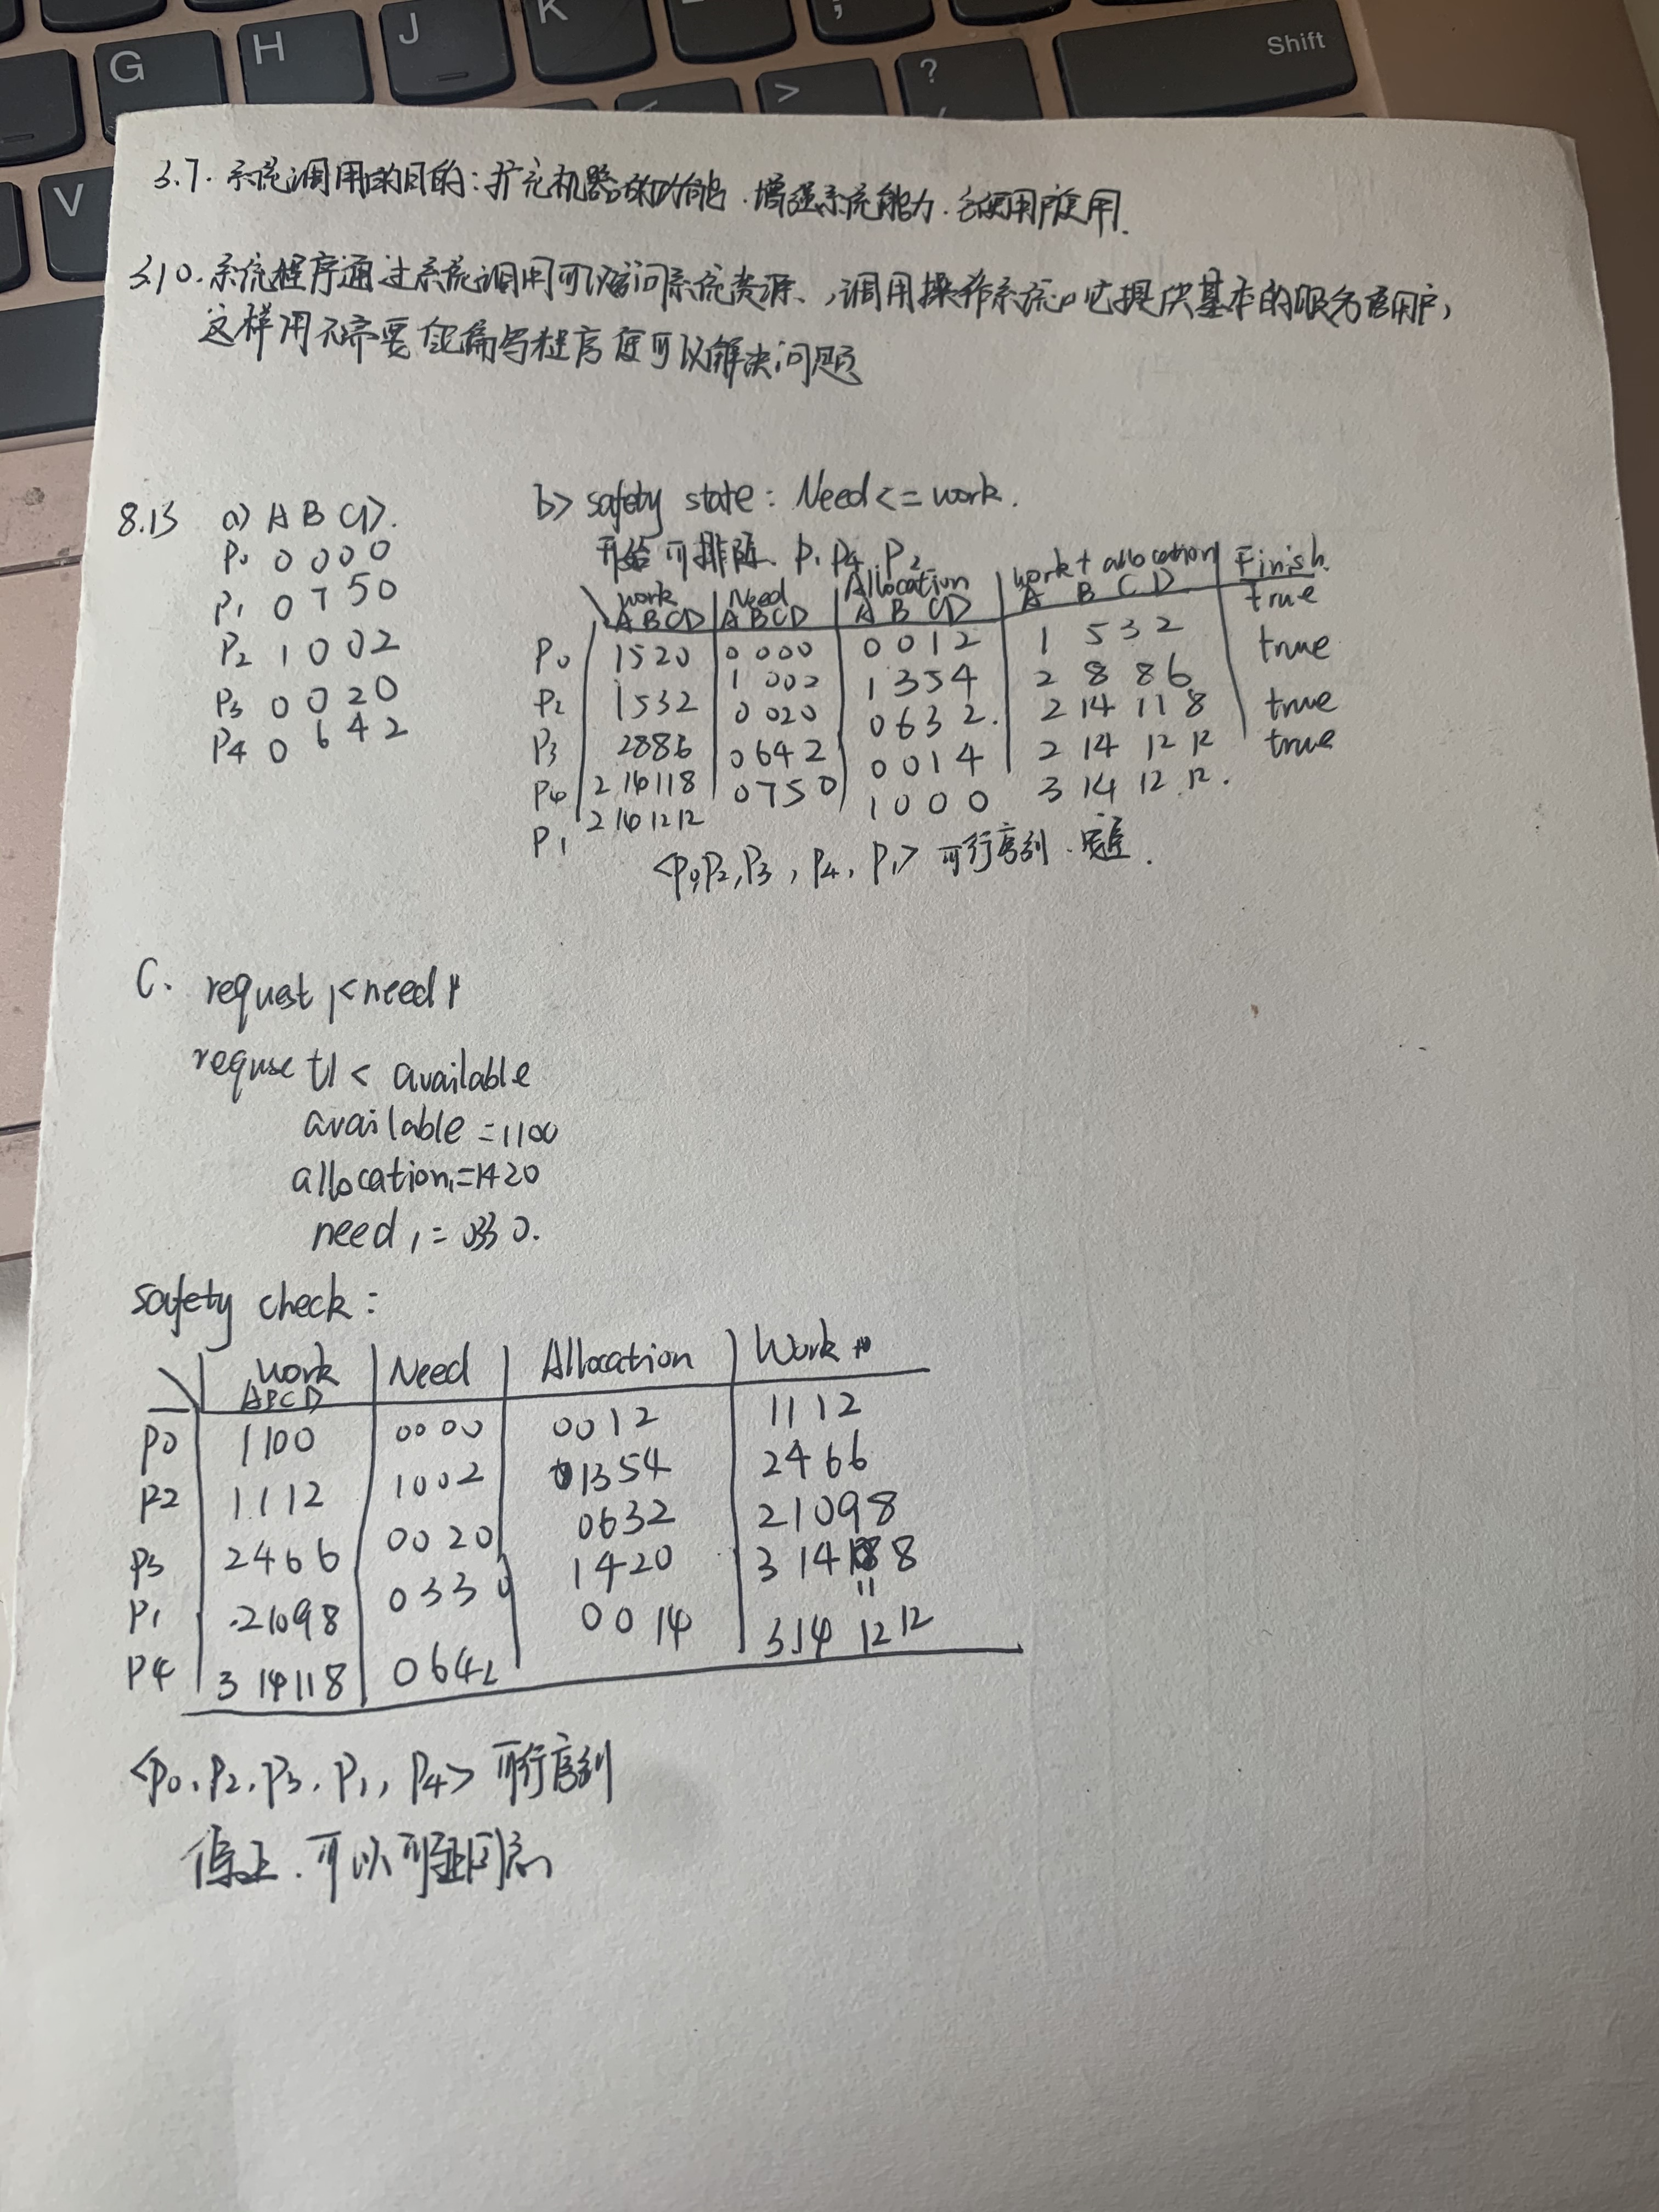 G
H
J
K
Shift
V
>
?
3.7. 系统调用的目的:扩充机器的功能.增强系统能力.方便用户使用.
3.10.系统程序通过系统调用可以访问系统资源、,调用操作系统 提供基本的服务 用户,
这样用不需要 编写程序便可以解决问题
8.13 a) A B C D.
P0 0 0 0 0
P1 0 7 5 0
P2 1 0 0 2
P3 0 0 2 0
P4 0 6 4 2
b> safety state: Need<=work.
开始可排除 P1 P4 P2
work Need Allocation work + allocation Finish.
A B C D A B C D A B C D A B C D true
P0 1520 0000 0012 1 5 3 2 true
P2 1532 1002 1354 2 8 8 6 true
P3 2886 0020 0632. 2 14 11 8 true
P4 2 14 11 8 0642 0014 2 14 12 12
P1 2 14 12 12 0750 1000 3 14 12 12.
<P0,P2,P3, P4, P1> 可行序列.
C. request1<need1
requset1< available
available =1100
allocation1=1420
need1=0330.
safety check:
work Need Allocation Work +
ABCD
P0 1100 0000 0012 1112
P2 1112 1002 1354 2466
P3 2466 0020 0632 21098
P1 .21098 0330 1420 3 14 11 8
P4 3 14 11 8 0642 0014 314 12 12
<P0.P2.P3.P1, P4> 可行序列
可以